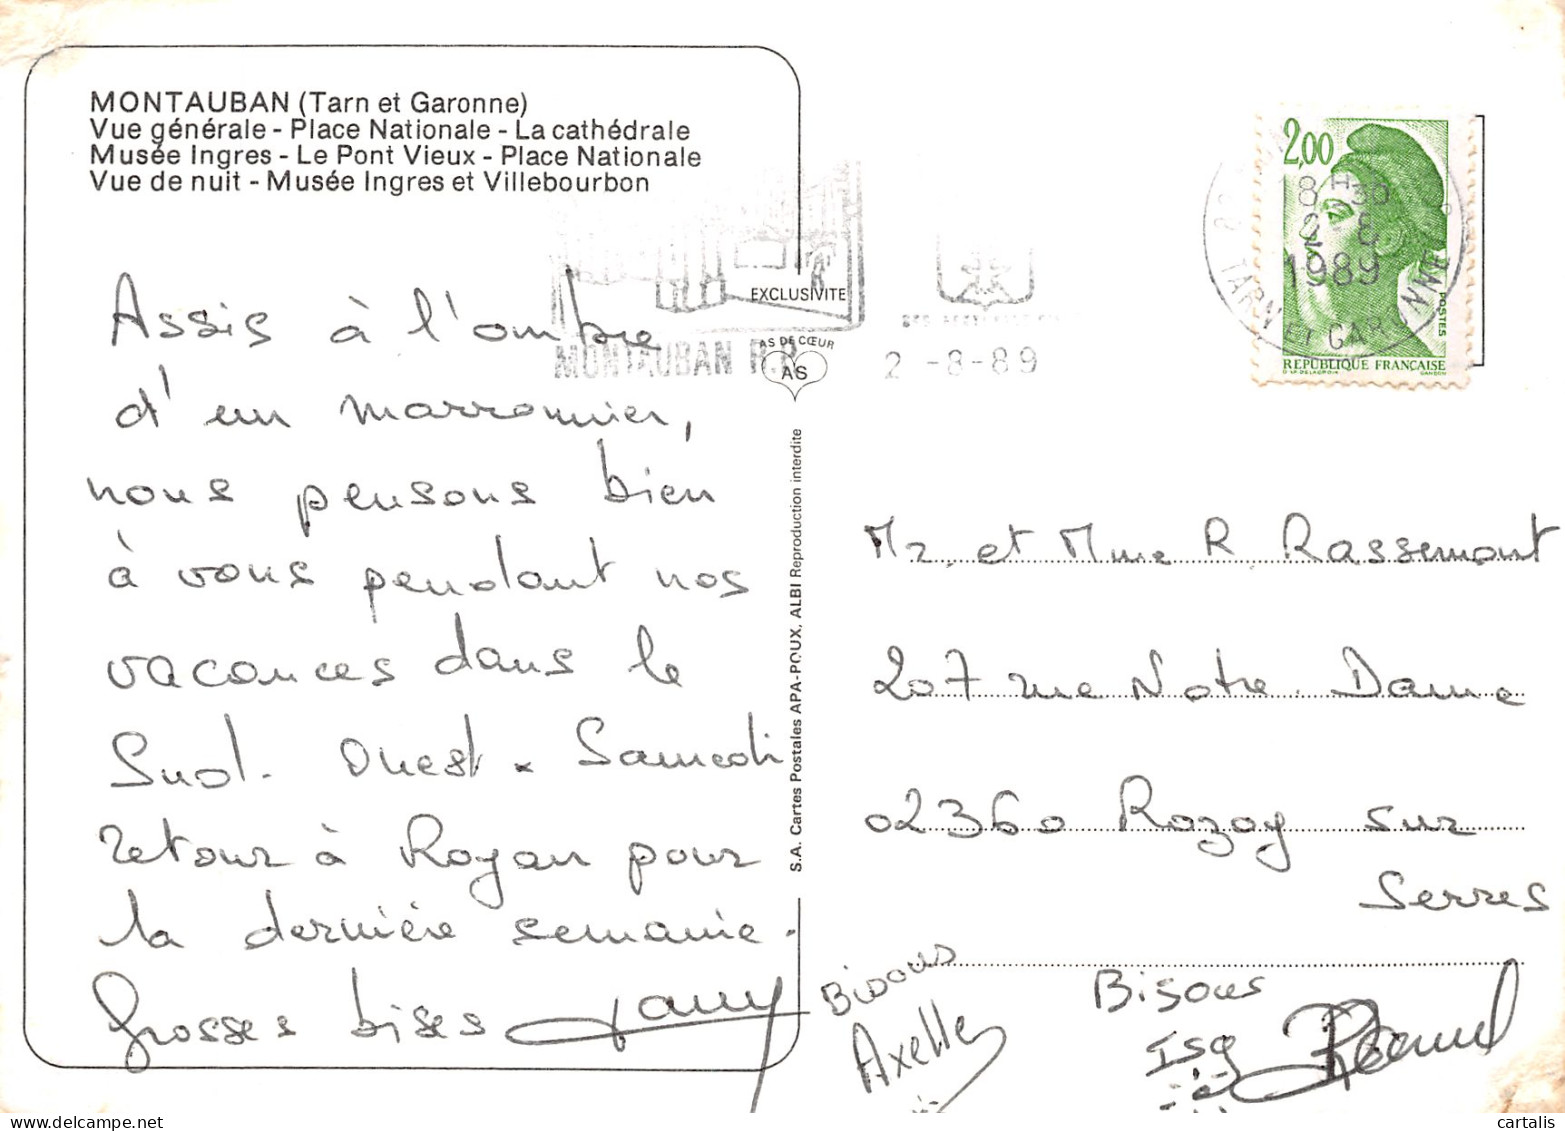 MONTAUBAN (Tarn et Garonne)
Vue générale - Place Nationale - La cathédrale
Musée Ingres - Le Pont Vieux - Place Nationale
Vue de nuit - Musée Ingres et Villebourbon
Assis à l'ombre
d'un marronnier,
nous pensons bien
à vous pendant nos
vacances dans le
Sud. Ouest. Samedi
retour à Royan pour
la dernière semanie.
Grosses bises
Bisous
Axelle
Bisous
Isa
EXCLUSIVITE
AS DE CŒUR
AS
MONTAUBAN R.P.
2 -8-89
S.A. Cartes Postales APA-POUX, ALBI Reproduction interdite
2,00
18 H 30
1989
TARN ET GARONNE
POSTES
REPUBLIQUE FRANÇAISE
Mr et Mme R Rassemont
207 rue Notre Dame
02360 Rozoy sur
Serres
cartalis